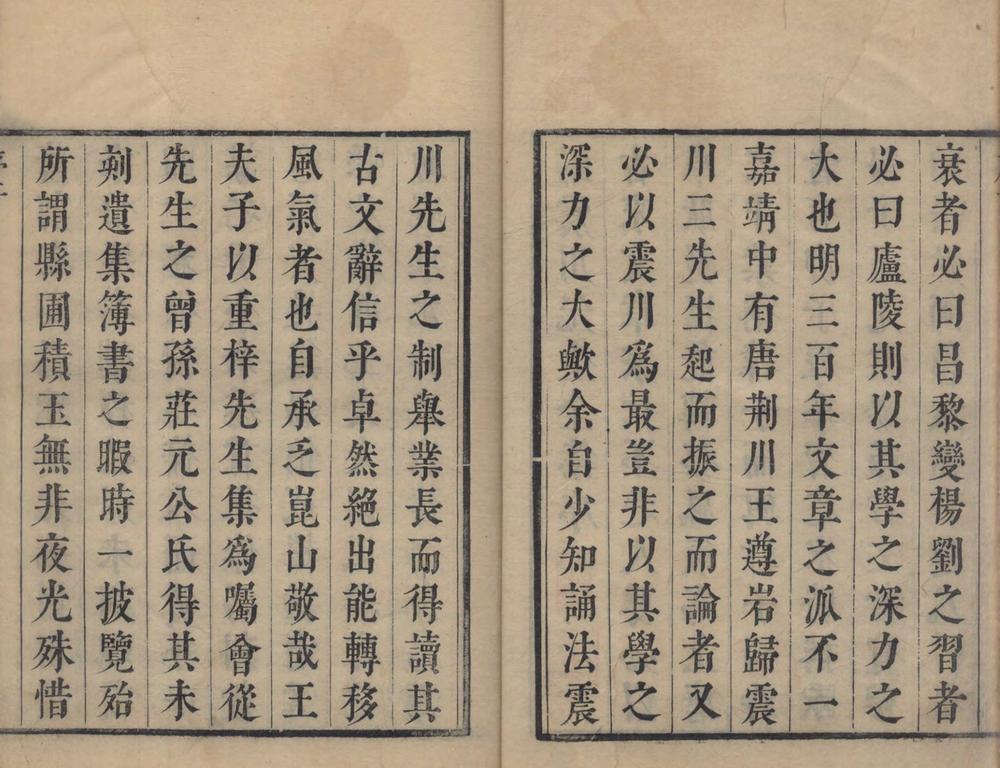 衰者必曰昌黎變楊劉之習者
必曰廬陵則以其學之深力之
大也明三百年文章之派不一
嘉靖中有唐荆川王遵岩歸震
川三先生起而振之而論者又
必以震川爲最豈非以其學之
深力之大歟余自少知誦法震
川先生之制舉業長而得讀其
古文辭信乎卓然絶出能轉移
風氣者也自承乏崑山敬哉王
夫子以重梓先生集爲囑會從
先生之曾孫莊元公氏得其未
刻遺集簿書之暇時一披覽殆
所謂縣圃積玉無非夜光殊惜